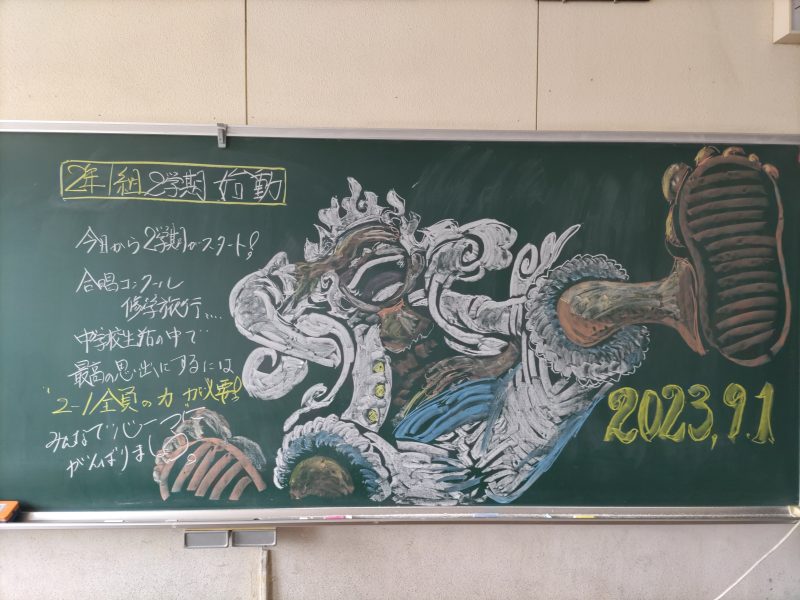 2年1組 2学期 始動
今日から2学期がスタート!
合唱コンクール
修学旅行....
中学校生活の中で
最高の思い出にするには
2-1全員の力が必要!
みんなで心一つに
がんばりましょう。
2023,9.1